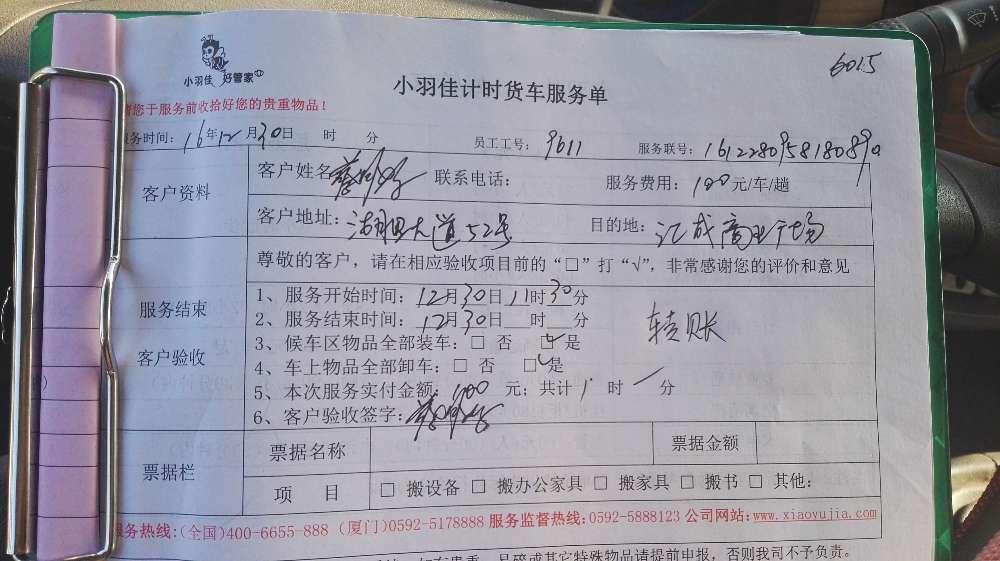 小羽佳 好管家
6015
小羽佳计时货车服务单
请您于服务前收拾好您的贵重物品！
服务时间：16年12月30日 时 分 员工工号：9611 服务联号：
客户资料
客户姓名 联系电话： 服务费用：100元/车/趟
客户地址：湖里大道52号 目的地：汇成商业广场
尊敬的客户，请在相应验收项目前的“□”打“√”，非常感谢您的评价和意见
服务结束
客户验收
1、服务开始时间：12月30日11时30分
2、服务结束时间：12月30日 时 分
3、候车区物品全部装车：□ 否 □√是
4、车上物品全部卸车：□ 否 □√是
5、本次服务实付金额：100 元；共计 时 分
6、客户验收签字：
转账
票据栏
票据名称 票据金额
项 目 □ 搬设备 □ 搬办公家具 □ 搬家具 □ 搬书 □ 其他：
服务热线：(全国)400-6655-888 (厦门)0592-5178888 服务监督热线：0592-5888123 公司网站：www.xiaoyujia.com
易碎或其它特殊物品请提前申报，否则我司不予负责。